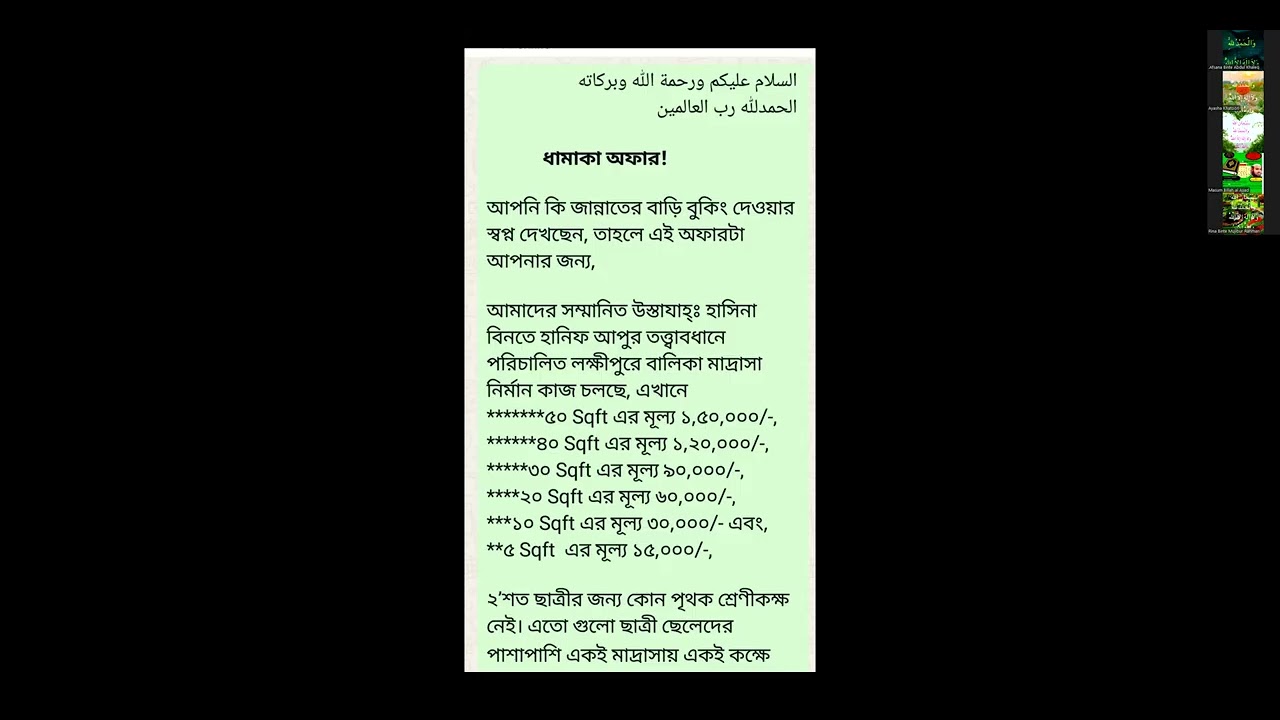 السلام عليكم ورحمة الله وبركاته
الحمدلله رب العالمين
ধামাকা অফার!
আপনি কি জান্নাতের বাড়ি বুকিং দেওয়ার
স্বপ্ন দেখছেন, তাহলে এই অফারটা
আপনার জন্য,
আমাদের সম্মানিত উস্তাযাহ্ঃ হাসিনা
বিনতে হানিফ আপুর তত্ত্বাবধানে
পরিচালিত লক্ষীপুরে বালিকা মাদ্রাসা
নির্মান কাজ চলছে, এখানে
*******৫০ Sqft এর মূল্য ১,৫০,০০০/-,
******৪০ Sqft এর মূল্য ১,২০,০০০/-,
*****৩০ Sqft এর মূল্য ৯০,০০০/-,
****২০ Sqft এর মূল্য ৬০,০০০/-,
***১০ Sqft এর মূল্য ৩০,০০০/- এবং,
**৫ Sqft এর মূল্য ১৫,০০০/-,
২'শত ছাত্রীর জন্য কোন পৃথক শ্রেণীকক্ষ
নেই। এতো গুলো ছাত্রী ছেলেদের
পাশাপাশি একই মাদ্রাসায় একই কক্ষে